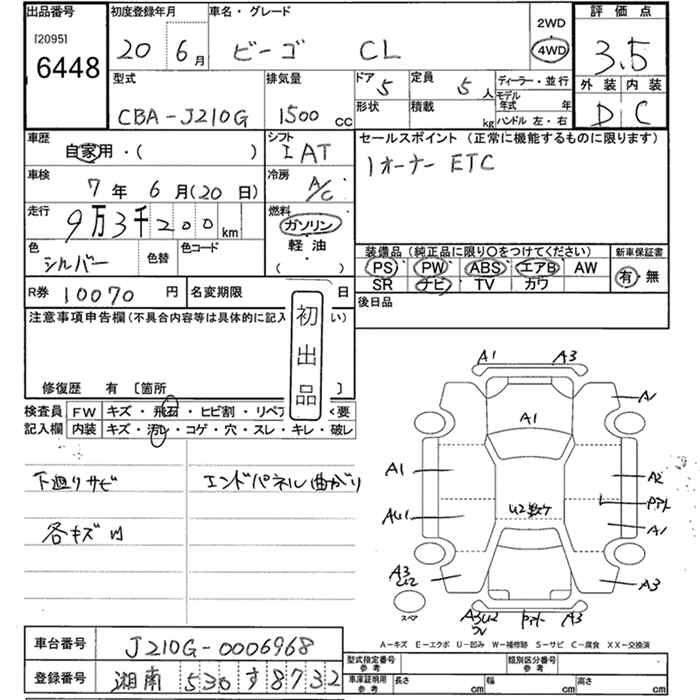 出品番号
[2095]
6448
初度登録年月
20 6月
車名・グレード
ビーゴ CL
2WD
4WD
評価点
3.5
外装 内装
D C
型式
CBA-J210G
排気量
1500 cc
ドア 5
定員 5人
形状
積載 kg
ディーラー・並行
モデル年式 年
ハンドル 左・右
車歴
自家用・( )
シフト
IAT
セールスポイント (正常に機能するものに限ります)
1オーナー ETC
車検
7年 6月(20日)
冷房
A/C
走行
9万3千200km
燃料
ガソリン
軽油
( )
色
シルバー
色替
色コード
装備品(純正品に限り○をつけてください)
PS PW ABS エアB AW
SR ナビ TV カワ
新車保証書
有・無
R券 10070円
名変期限 日
後日品
注意事項申告欄(不具合内容等は具体的に記入 い)
初出品
修復歴 有 [箇所 ]
検査員記入欄
FW キズ・飛石・ヒビ割・リペア く要
内装 キズ・汚レ・コゲ・穴・スレ・キレ・破レ
下廻りサビ
エンドパネル曲がり
各キズ凹
A1 A3
A1
A1
A1
A2
AU1
U2数ケ
Pアト
A1
A3
U2
A3
スペア
A3U2
Pアト
A3
A-キズ E-エクボ U-凹み W-補修跡 S-サビ C-腐食 XX-交換済
車台番号
J210G-0006968
登録番号
湘南 530 す 8732
型式指定番号
参考
類別区分番号
参考
車庫証明用
参考
長さ cm
幅 cm
高さ cm